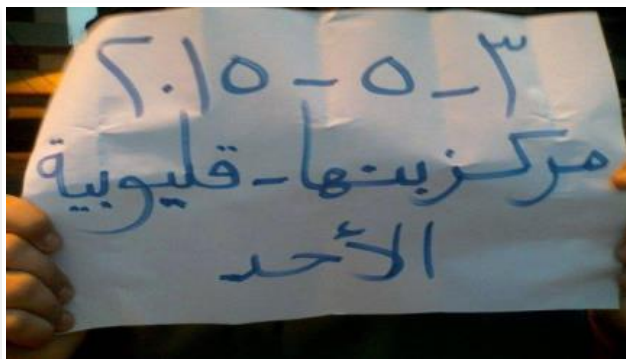 ٣ - ٥ - ٢٠١٥
مركز بنها - قليوبية
الأحد